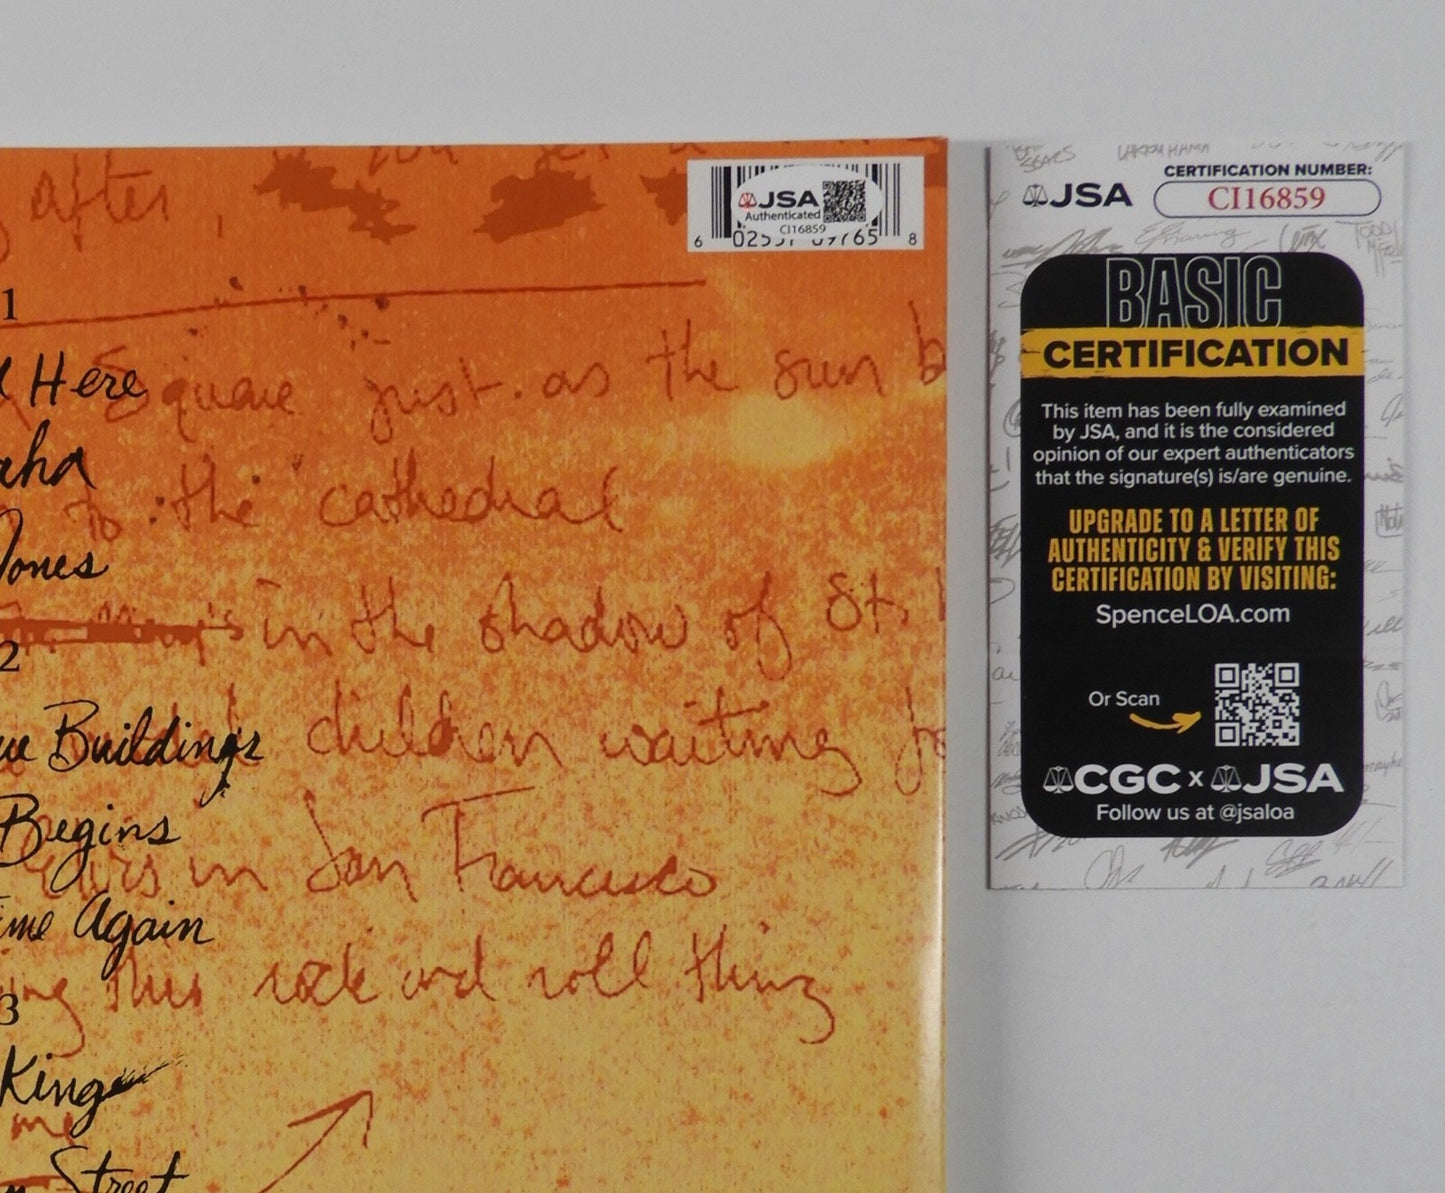 after,
JSA
Authenticated
CI16859
6
8
1
Here
Square just as the sun
Jones
to the cathedral
in the shadow of St.
2
Buildings
children waiting
Begins
in San Francisco
Again
this rock and roll thing
3
King
me
Street
JSA
CERTIFICATION NUMBER:
CI16859
BASIC
CERTIFICATION
This item has been fully examined
by JSA, and it is the considered
opinion of our expert authenticators
that the signature(s) is/are genuine.
UPGRADE TO A LETTER OF
AUTHENTICITY & VERIFY THIS
CERTIFICATION BY VISITING:
SpenceLOA.com
Or Scan
CGC x JSA
Follow us at @jsaloa